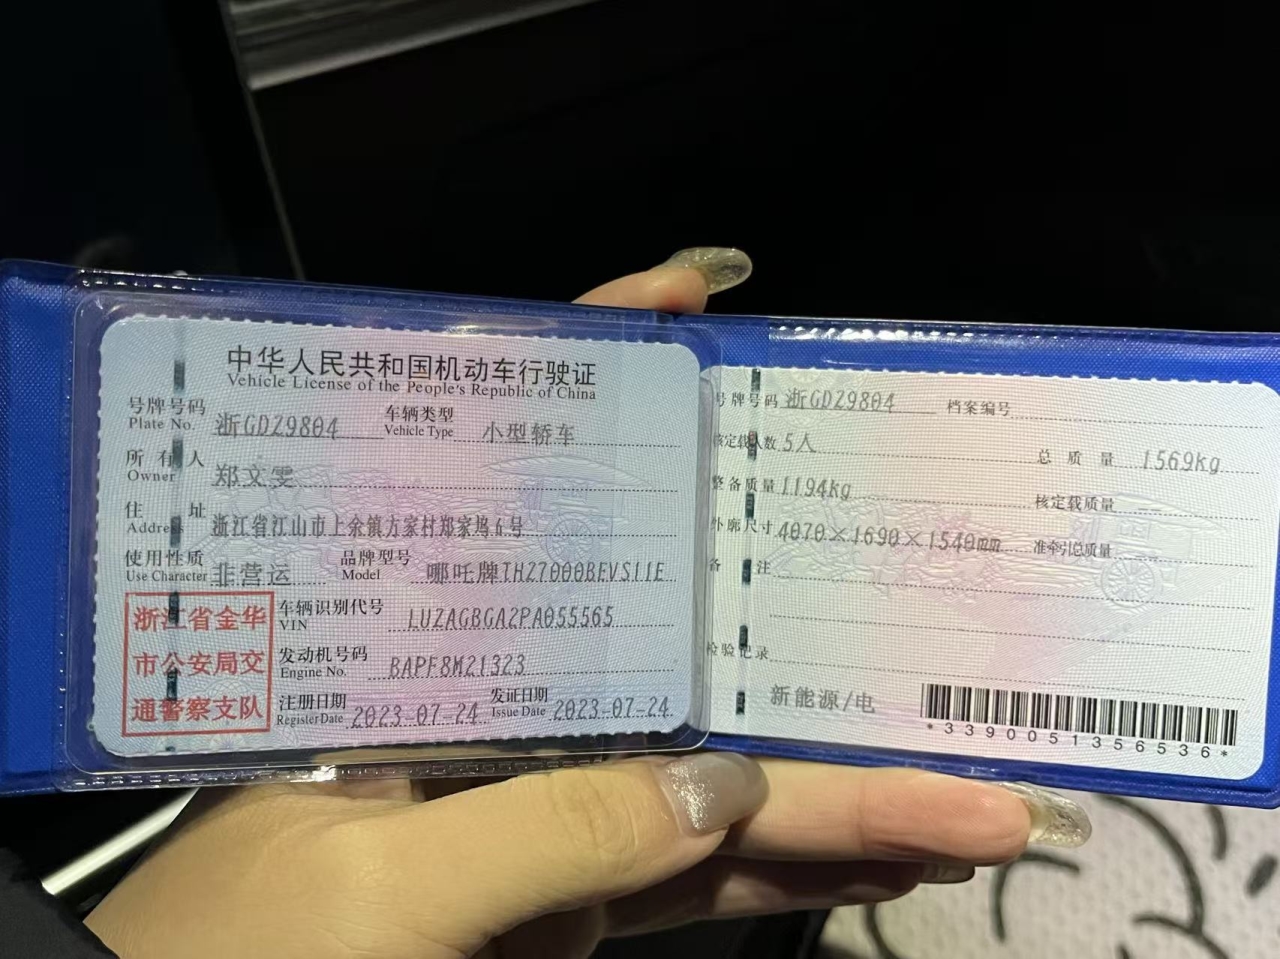 中华人民共和国机动车行驶证
Vehicle License of the People's Republic of China
号牌号码 浙GDZ9804 车辆类型 小型轿车
Plate No. Vehicle Type
所有人 郑文雯
Owner
住址 浙江省江山市上余镇方家村郑家坞6号
Address
使用性质 非营运 品牌型号 哪吒牌THZ7000BEVS11E
Use Character Model
浙江省金华
市公安局交
通警察支队
车辆识别代号 LUZAGBGA2PA055565
VIN
发动机号码 BAPF8M21323
Engine No.
注册日期 2023-07-24 发证日期 2023-07-24
Register Date Issue Date
号牌号码 浙GDZ9804 档案编号
核定载人数 5人 总质量 1569kg
整备质量 1194kg 核定载质量 --
外廓尺寸 4070×1690×1540mm 准牵引总质量
备注
检验记录
新能源/电
*3390051356536*